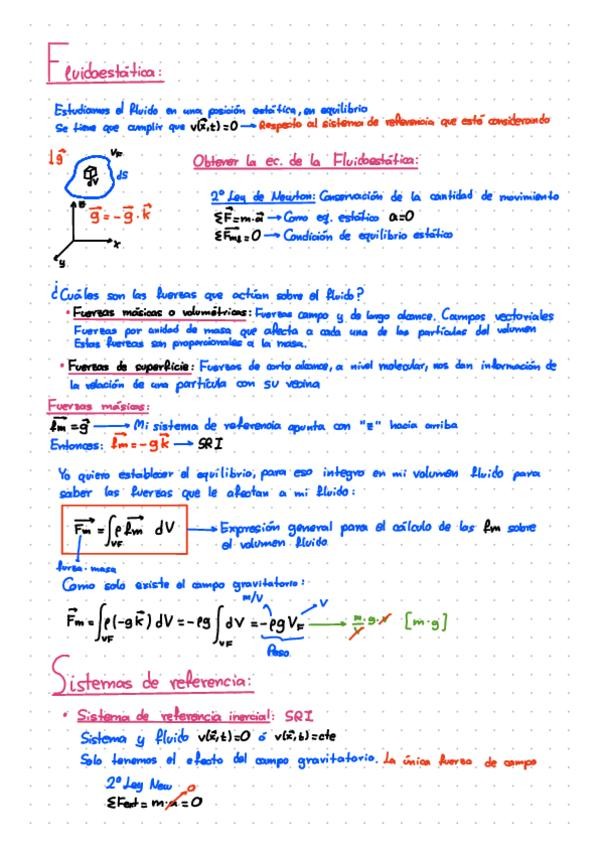 Fluidoestática:
Estudiamos el fluido en una posición estática, en equilibrio
Se tiene que cumplir que v(x⃗,t)=0 → Respecto al sistema de referencia que esté considerando
↓g⃗
VF
dS
dV
z
x
y
g⃗ = -g⃗·k⃗
Obtener la ec. de la Fluidoestática:
2º Ley de Newton: Conservación de la cantidad de movimiento
ΣF⃗=m·a⃗ → Como eq. estático a=0
→ Condición de equilibrio estático
¿Cuáles son las fuerzas que actúan sobre el fluido?
• Fuerzas másicas o volumétricas: Fuerzas campo y de largo alcance. Campos vectoriales
Fuerzas por unidad de masa que afecta a cada una de las partículas del volumen
Estas fuerzas son proporcionales a la masa.
• Fuerzas de superficie: Fuerzas de corto alcance, a nivel molecular, nos dan información de
la relación de una partícula con su vecina
Fuerzas másicas:
f⃗m = g⃗ → Mi sistema de referencia apunta con "z" hacia arriba
Entonces: f⃗m = -g k⃗ → SRI
Yo quiero establecer el equilibrio, para eso integro en mi volumen fluido para
saber las fuerzas que le afectan a mi fluido:
F⃗m = ∫VF ρ f⃗m dV → Expresión general para el cálculo de las fm sobre
el volumen fluido
fuerza masa
Como solo existe el campo gravitatorio:
m/V
V
F⃗m = ∫VF ρ(-g k⃗) dV = -ρg ∫VF dV = -ρg VF → m/V·g·V [m·g]
Peso
Sistemas de referencia:
• Sistema de referencia inercial: SRI
Sistema y fluido v(x⃗,t)=0 ó v(x⃗,t)=cte
Solo tenemos el efecto del campo gravitatorio. La única fuerza de campo
2º Ley New
0
ΣFext = m·a = 0